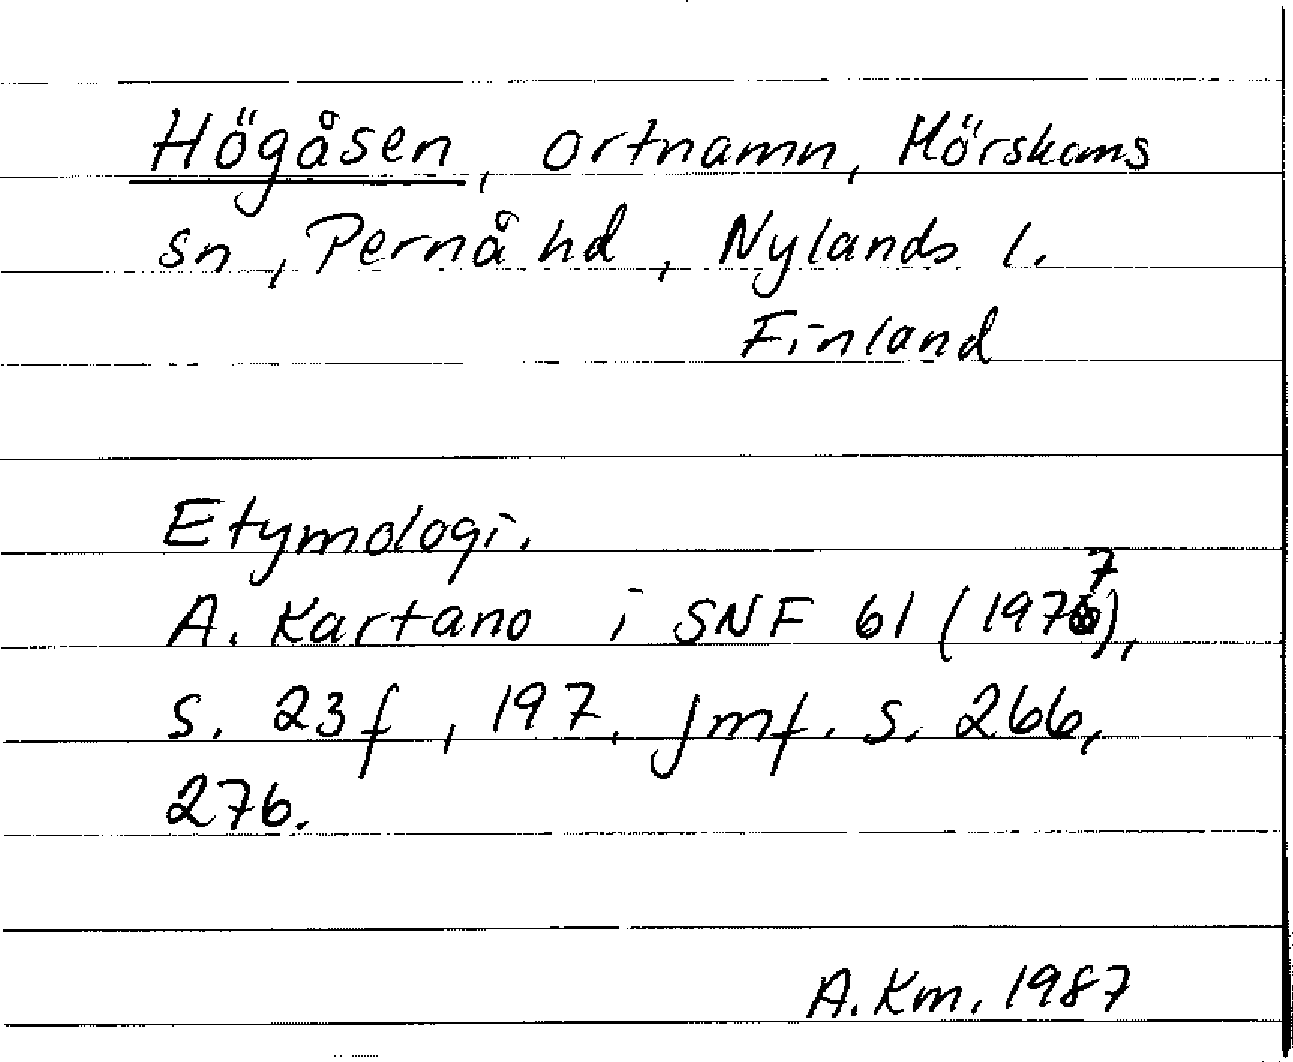 Högåsen, ortnamn, Mörskoms
sn, Pernå hd, Nylands l.
Finland
Etymologi.
A. Kartano i SNF 61 (1977),
s. 23f, 197. Jmf. s. 266,
276.
A.Km. 1987